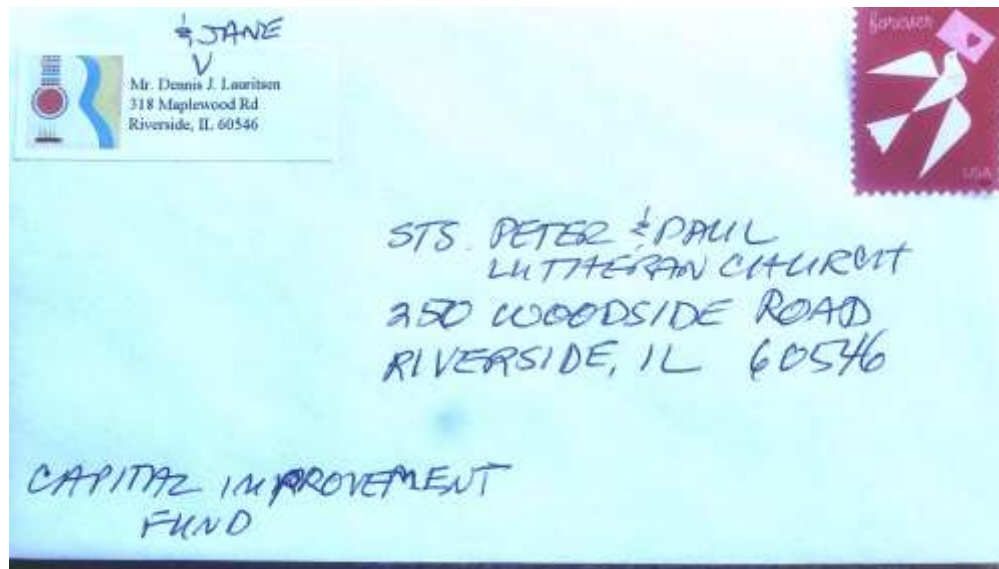 & JANE
V
Mr. Dennis J. Lauritsen
318 Maplewood Rd
Riverside, IL 60546
forever
USA
STS. PETER & PAUL
LUTHERAN CHURCH
250 WOODSIDE ROAD
RIVERSIDE, IL 60546
CAPITAL IMPROVEMENT
FUND